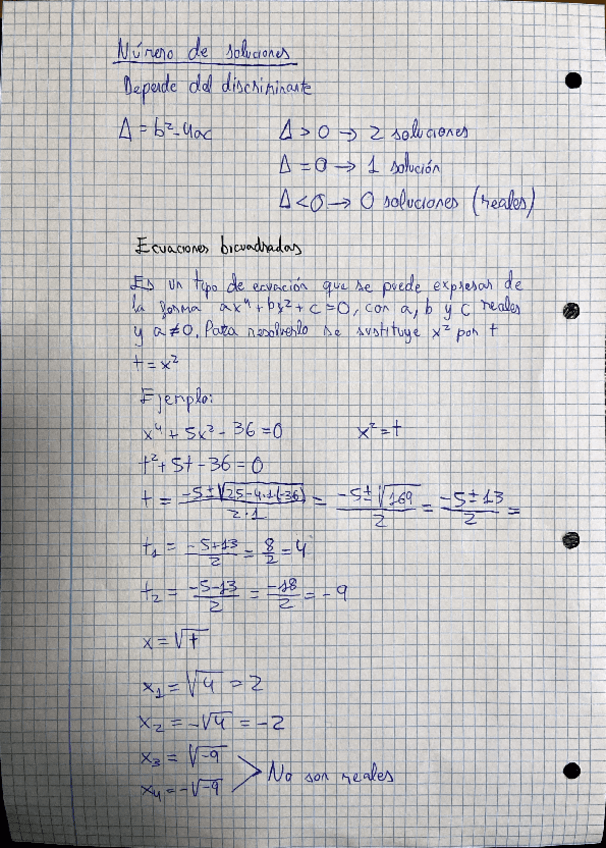 Número de soluciones
Depende del discriminante
Δ = b² - 4ac
Δ > 0 → 2 soluciones
Δ = 0 → 1 solución
Δ < 0 → 0 soluciones (reales)
Ecuaciones bicuadradas
Es un tipo de ecuación que se puede expresar de
la forma ax⁴ + bx² + c = 0, con a, b y c reales
y a ≠ 0. Para resolverlo se sustituye x² por t
t = x²
Ejemplo:
x⁴ + 5x² - 36 = 0 x² = t
t² + 5t - 36 = 0
t = (-5 ± √(25 - 4·1·(-36)))/(2·1) = (-5 ± √169)/2 = (-5 ± 13)/2 =
t₁ = (-5+13)/2 = 8/2 = 4
t₂ = (-5-13)/2 = -18/2 = -9
x = √t
x₁ = √4 = 2
x₂ = -√4 = -2
x₃ = √-9
x₄ = -√-9
No son reales